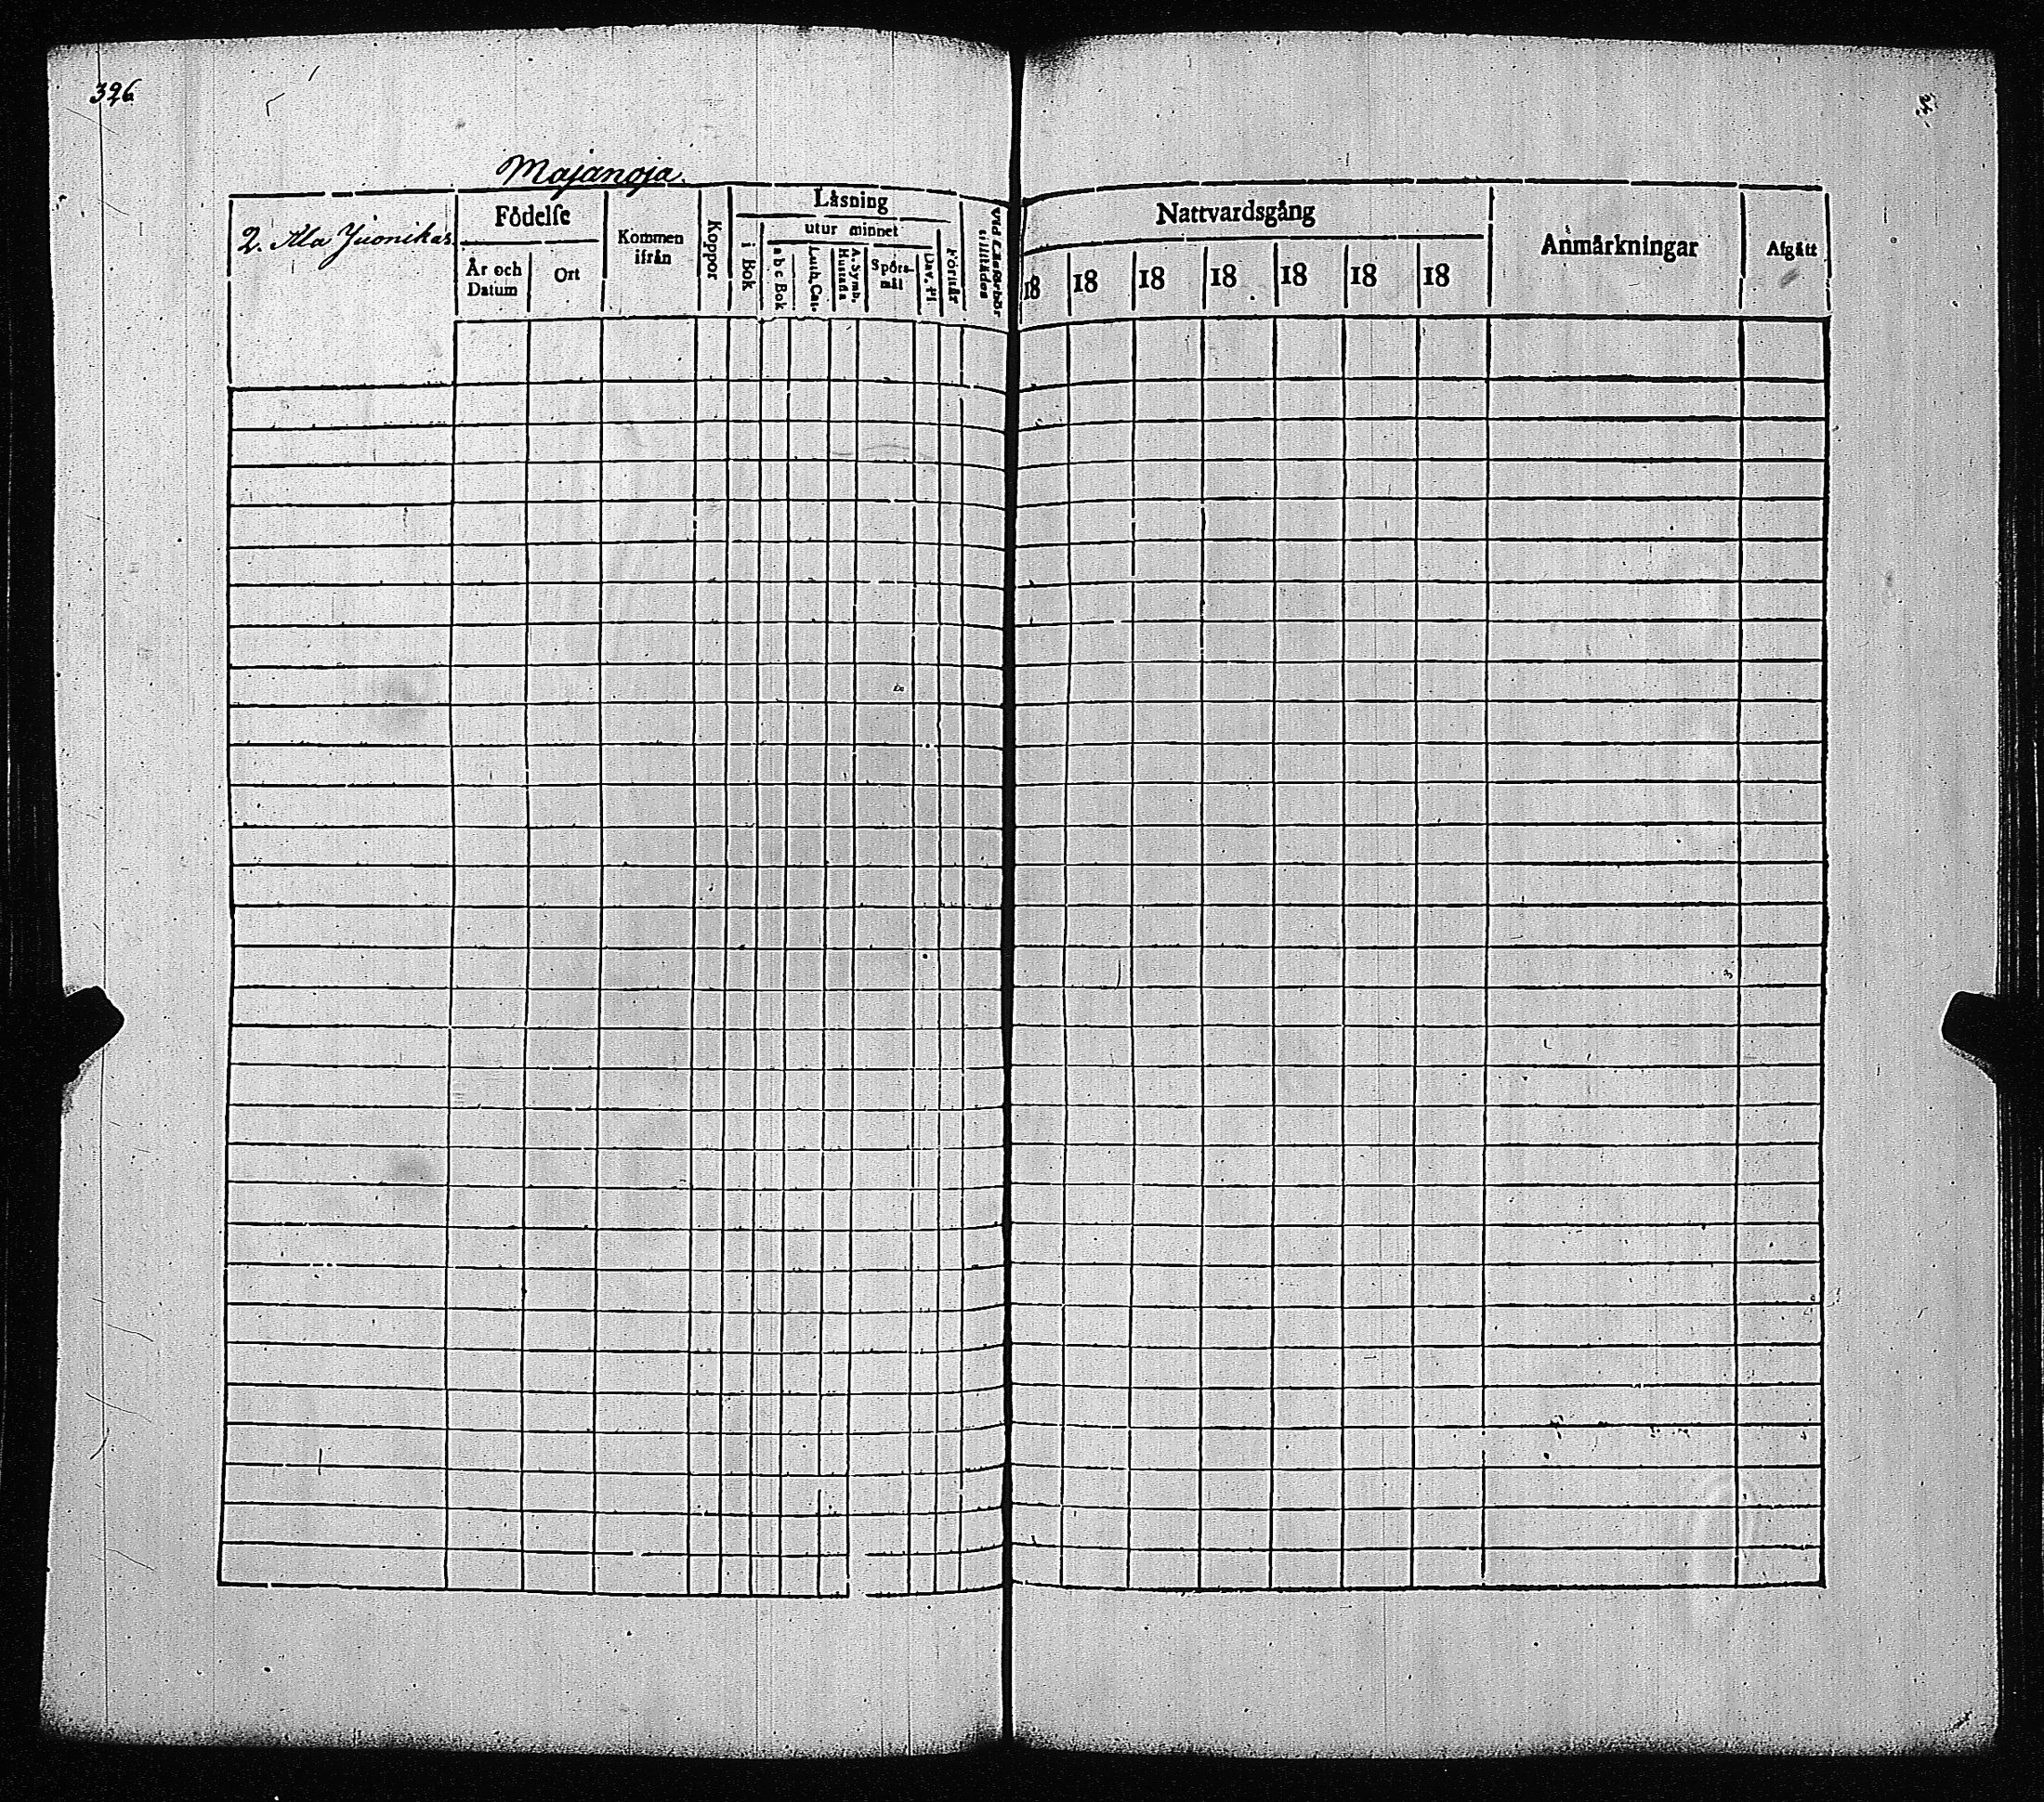 396
Majanoja.
2. Ala Juonikas.
Födelse
År och Datum
Ort
Kommen ifrån
Koppor
Läsning
i Bok
utur minnet
a b c Bok
Luth. Cat.
A. Symb. Hustafla
Spörs-mål
Dav. Ps
Förstår
Vid Läsförhör tillstädes
Nattvardsgång
18
18
18
18
18
18
18
Anmärkningar
Afgått